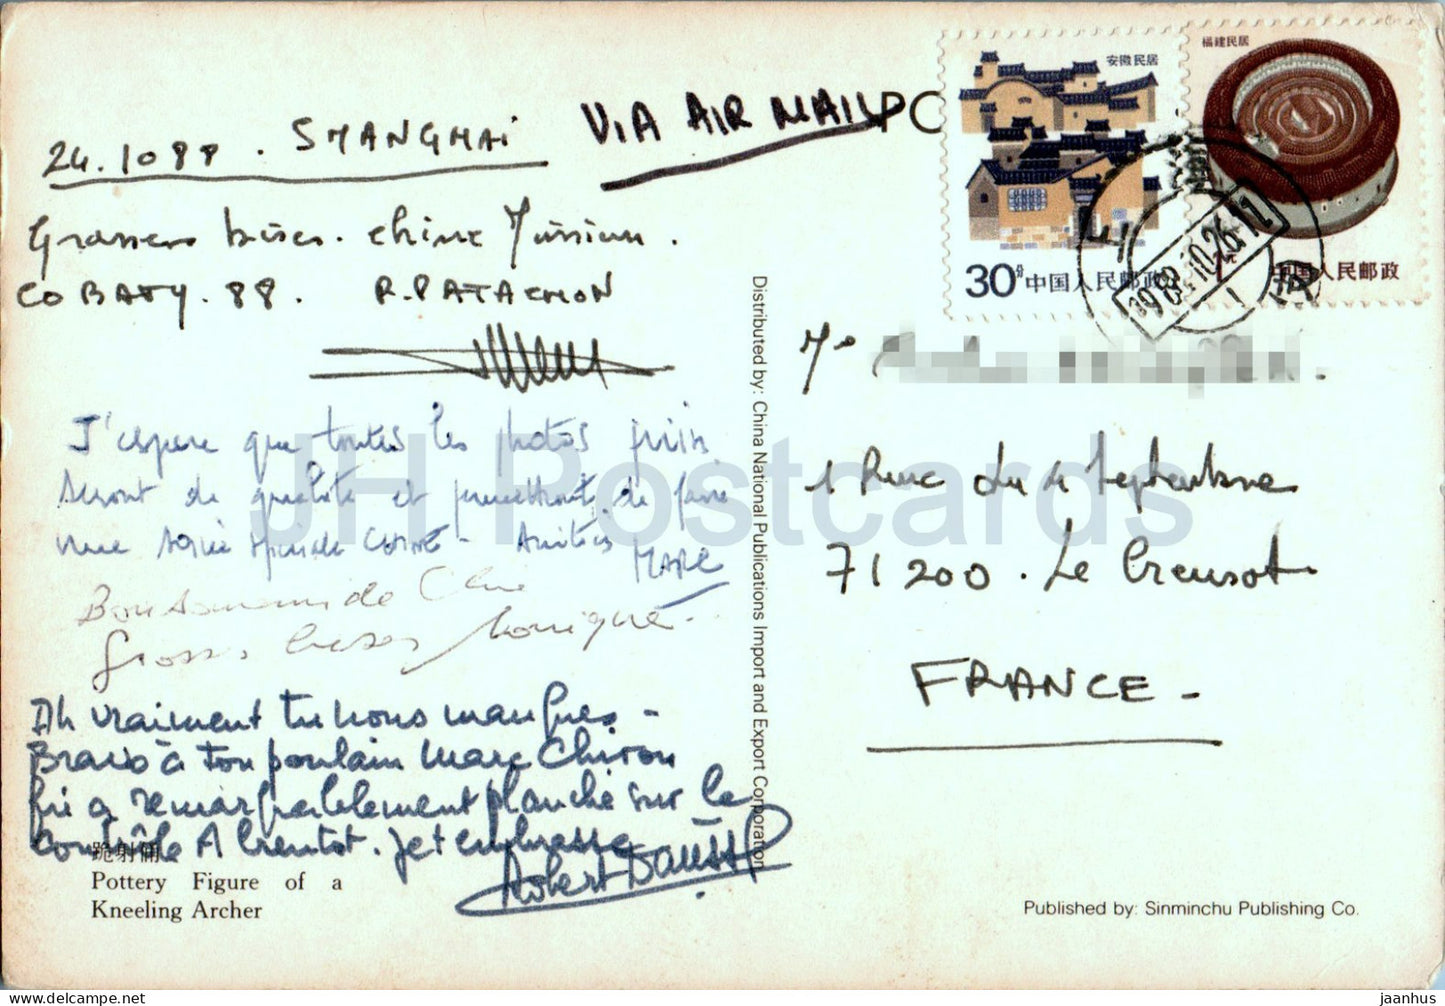 24.10 88 . SHANGHAI
VIA AIR MAIL
PO
安徽民居
30分中国人民邮政
福建民居
中国人民邮政
1988.10.26.11
Grosses bises. Chine Mission.
COBATY. 88. R. PATACHON
J'espère que toutes les photos
seront de qualité et permettront de faire
une soirée spéciale - Amitiés
MARC
Bons de Chine
Grosses bises Monique.
Ah vraiment tu nous manques -
Bravo à ton poulain Marc Chiron
qui a remarquablement planché sur le
contrôle A bientot. Je t embrasse
Robert
跪射俑
Pottery Figure of a
Kneeling Archer
Distributed by: China National Publications Import and Export Corporation
1 Rue du 4 Septembre
71200. Le Creusot
FRANCE -
Published by: Sinminchu Publishing Co.
JH Postcards
jaanhus